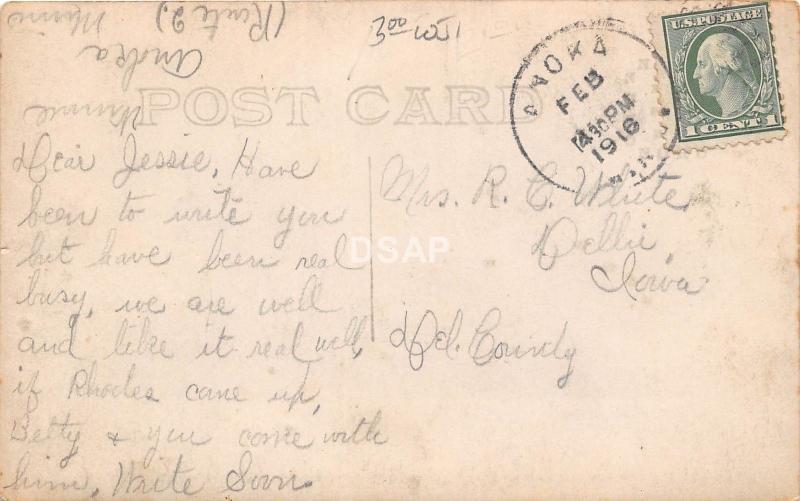 3.00
U.S. POSTAGE
1 CENT 1
ANOKA
FEB
430PM
1916
MINN.
POST CARD
Dear Jessie, Have
been to write you
but have been real
busy, we are well
and like it real well,
if Rhodes came up,
Betty & you come with
him, Write Soon.
Minnie
Anoka
(Route 2)
Minn
Mrs. R. C. White
Dellii
Iowa
Del. County
DSAP